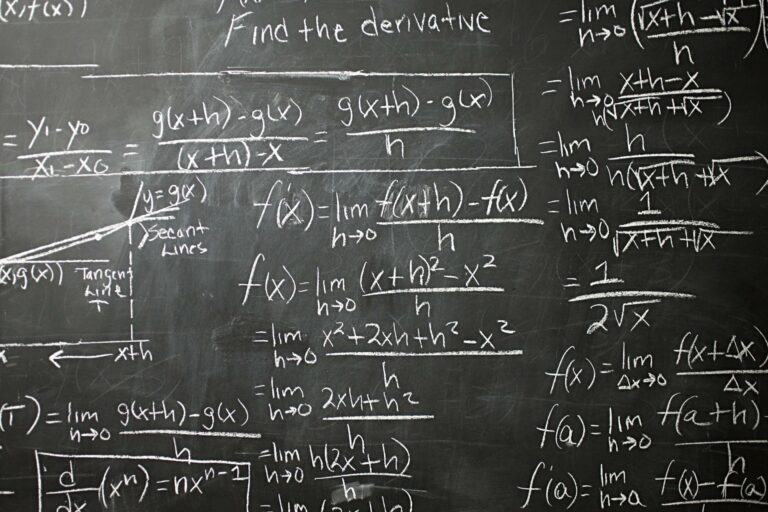 (x, f(x))
Find the derivative
= y₁ - y₀ / x₁ - x₀ = g(x+h) - g(x) / (x+h) - x = g(x+h) - g(x) / h
y = g(x)
Secant
Lines
(x, g(x))
Tangent
Line
T
x+h
(T) = lim h→0 g(x+h) - g(x) / h
d/dx (xⁿ) = nxⁿ⁻¹
f'(x) = lim h→0 f(x+h) - f(x) / h
f(x) = lim h→0 (x+h)² - x² / h
= lim h→0 x² + 2xh + h² - x² / h
= lim h→0 2xh + h² / h
= lim h→0 h(2x + h) / h
= lim
= lim h→0 (√x+h - √x / h)
= lim h→0 x+h-x / h(√x+h + √x)
= lim h→0 h / h(√x+h + √x
= lim h→0 1 / √x+h + √x
= 1 / 2√x
f(x) = lim Δx→0 f(x+Δx) / Δx
f(a) = lim h→0 f(a+h) - / h
f'(a) = lim h→a f(x) - f(a)